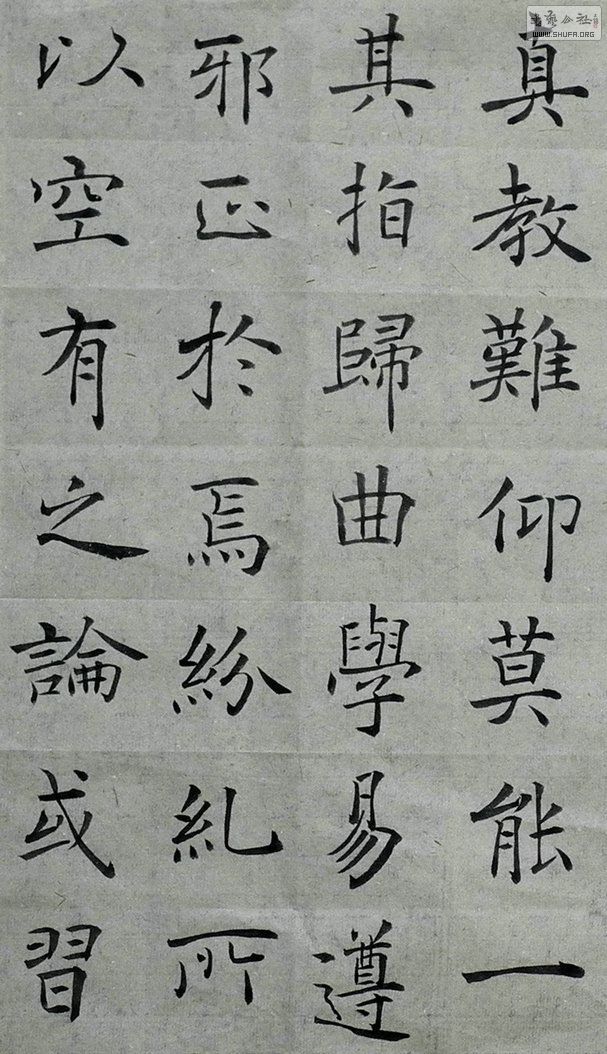 真教難仰莫能一
其指歸曲學易遵
邪正於焉紛糺所
以空有之論或習
WWW.SHUFA.ORG